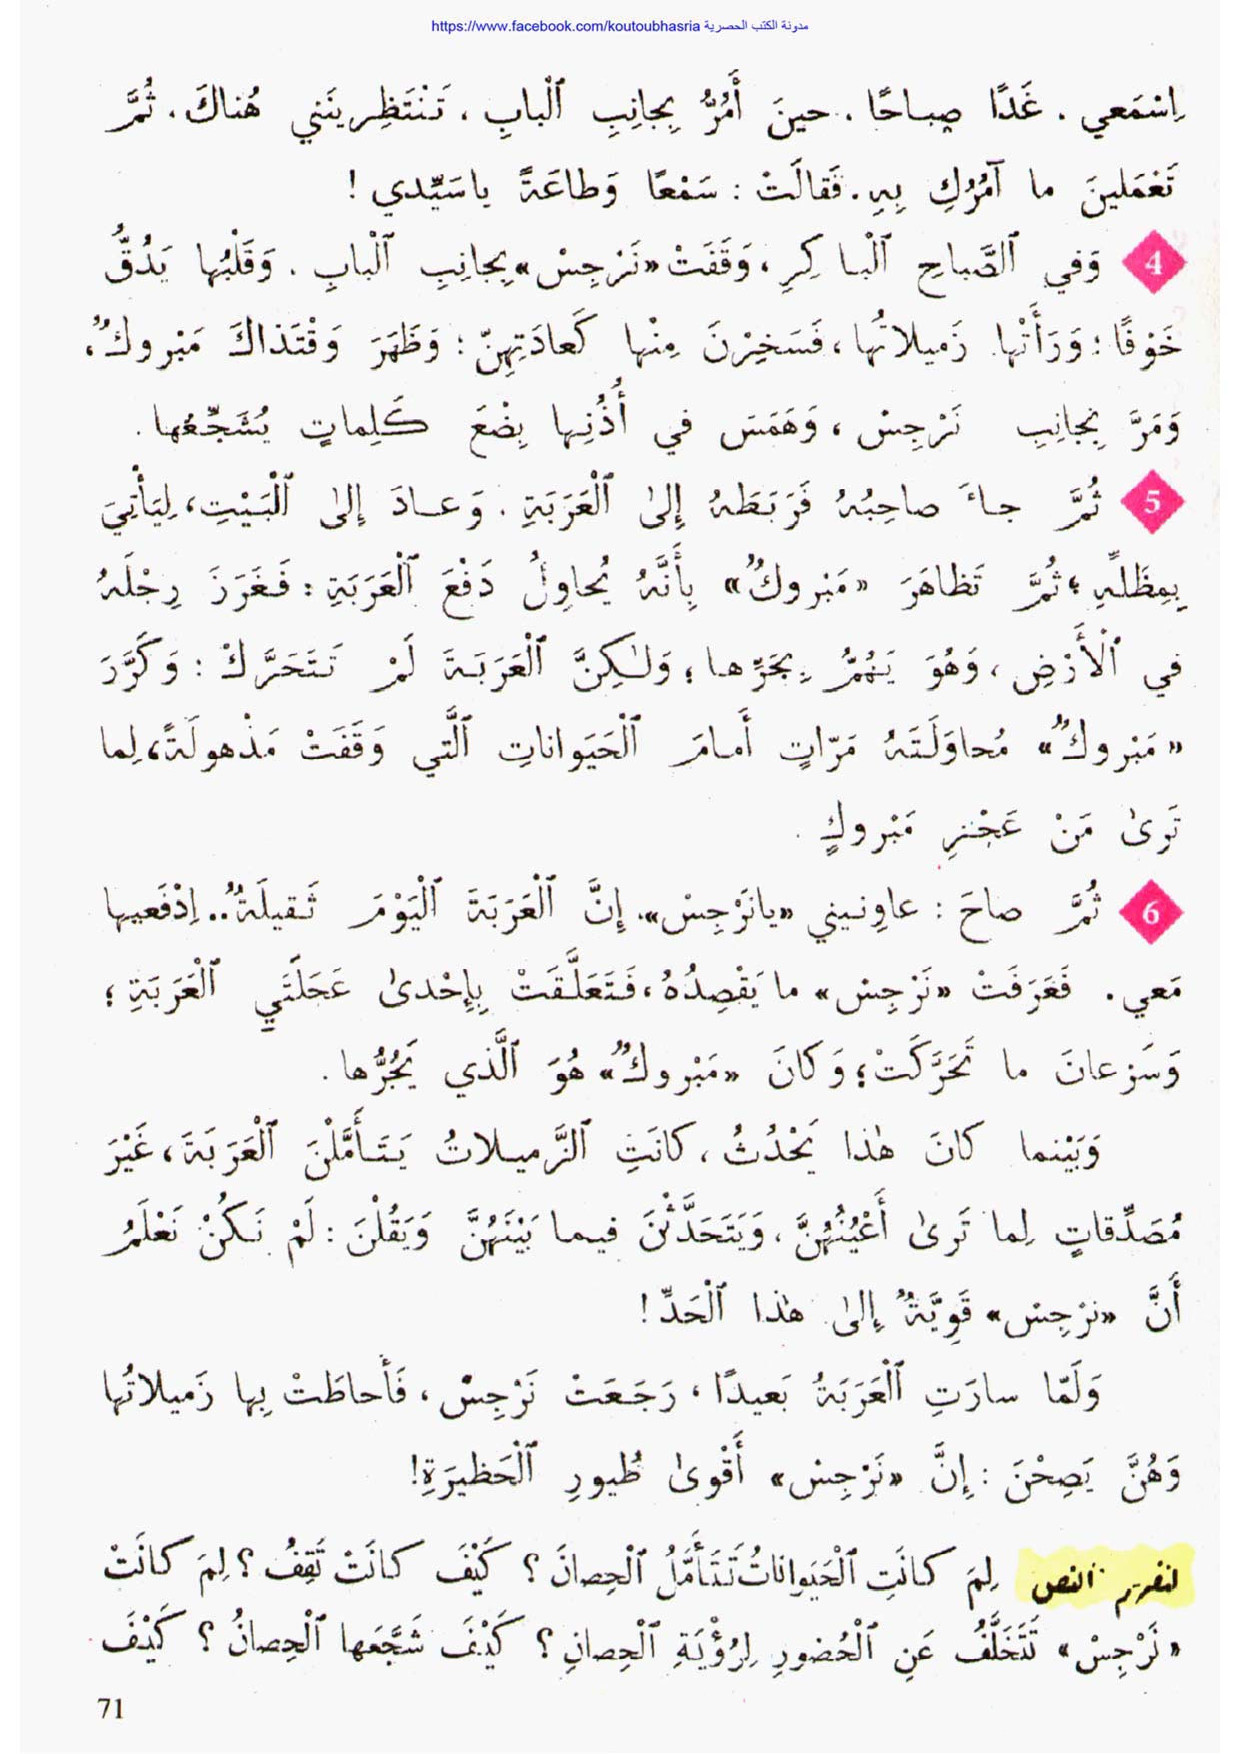 https://www.facebook.com/koutoubhasria مدونة الكتب الحصرية
اِسْمَعي . غَدًا صباحًا ، حينَ أَمُرُّ بِجانِبِ ٱلْبابِ ، تَنْتَظِرينَني هُناكَ ، ثُمَّ
تَعْمَلينَ ما آمُرُكِ بِهِ . فَقالَتْ : سَمْعًا وَطاعَةً ياسَيِّدي !
4 وَفي ٱلصَّباحِ ٱلْباكِرِ ، وَقَفَتْ «نَرْجِسْ» بِجانِبِ ٱلْبابِ . وَقَلْبُها يَدُقُّ
خَوْفًا ؛ وَرَأَتْها زَميلاتُها ، فَسَخِرْنَ مِنْها كَعادَتِهِنّ ؛ وَظَهَرَ وَقْتَذاكَ مَبْروكٌ ،
وَمَرَّ بِجانِبِ نَرْجِسْ ، وَهَمَسَ في أُذُنِها بِضْعَ كَلِماتٍ يُشَجِّعُها .
5 ثُمَّ جاءَ صاحِبُهُ فَرَبَطَهُ إِلىٰ ٱلْعَرَبَةِ . وَعادَ إِلىٰ ٱلْبَيْتِ ، لِيَأْتِيَ
بِمِظَلَّةٍ ؛ ثُمَّ تَظاهَرَ «مَبْروكٌ» بِأَنَّهُ يُحاوِلُ دَفْعَ ٱلْعَرَبَةِ : فَغَرَزَ رِجْلَهُ
في ٱلْأَرْضِ ، وَهُوَ يَهُمُّ بِجَرِّها ؛ وَلٰكِنَّ ٱلْعَرَبَةَ لَمْ تَتَحَرَّكْ : وَكَرَّرَ
«مَبْروكٌ» مُحاوَلَتَهُ مَرّاتٍ أَمامَ ٱلْحَيَواناتِ ٱلَّتي وَقَفَتْ مَذْهولَةً ، لِما
تَرىٰ مَنْ عَجْزِ مَبْروكٍ .
6 ثُمَّ صاحَ : عاوِنيني «يانَرْجِسْ» . إِنَّ ٱلْعَرَبَةَ ٱلْيَوْمَ ثَقيلَةٌ .. اِدْفَعيها
مَعي . فَعَرَفَتْ «نَرْجِسْ» ما يَقْصِدُهُ ، فَتَعَلَّقَتْ بِإِحْدىٰ عَجَلَتَيِ ٱلْعَرَبَةِ ؛
وَسَرْعانَ ما تَحَرَّكَتْ ؛ وَكانَ «مَبْروكٌ» هُوَ ٱلَّذي يَجُرُّها .
وَبَيْنما كانَ هٰذا يَحْدُثُ ، كانَتِ ٱلزَّميلاتُ يَتَأَمَّلْنَ ٱلْعَرَبَةَ ، غَيْرَ
مُصَدِّقاتٍ لِما تَرىٰ أَعْيُنُهُنَّ ، وَيَتَحَدَّثْنَ فيما بَيْنَهُنَّ وَيَقُلْنَ : لَمْ نَكُنْ نَعْلَمُ
أَنَّ «نرْجِسْ» قَوِيَّةٌ إِلىٰ هٰذا ٱلْحَدِّ !
وَلَمّا سارَتِ ٱلْعَرَبَةُ بَعيدًا ، رَجَعَتْ نَرْجِسْ ، فَأَحاطَتْ بِها زَميلاتُها
وَهُنَّ يَصِحْنَ : إِنَّ «نَرْجِسْ» أَقْوىٰ طُيورِ ٱلْحَظيرَةِ !
لتفهم النص لِمَ كانَتِ ٱلْحَيَواناتُ تَتَأَمَّلُ ٱلْحِصانَ ؟ كَيْفَ كانَتْ تَقِفُ ؟ لِمَ كانَتْ
«نَرْجِسْ» تَتَخَلَّفُ عَنِ ٱلْحُضورِ لِرُؤْيَةِ ٱلْحِصانِ ؟ كَيْفَ شَجَّعَها ٱلْحِصانُ ؟ كَيْفَ
71